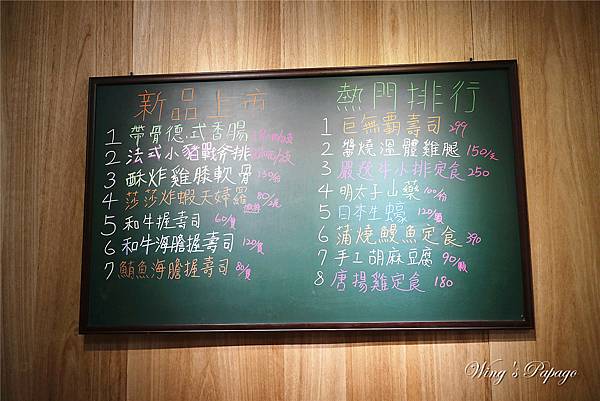 新品上市
1 帶骨德式香腸
2 法式小豬戰斧排
3 酥炸雞膝軟骨 130/份
4 莎莎炸蝦天婦羅 80/2尾
5 和牛握壽司 60/貫
6 和牛海膽握壽司 120/貫
7 鮪魚海膽握壽司 80/貫
熱門排行
1 巨無霸壽司 299
2 醬燒溫體雞腿 150/支
3 嚴選牛小排定食 250
4 明太子山藥 100/份
5 日本生蠔 120/顆
6 蒲燒鰻魚定食 390
7 手工胡麻豆腐 90/顆
8 唐揚雞定食 180
Wing's Papago